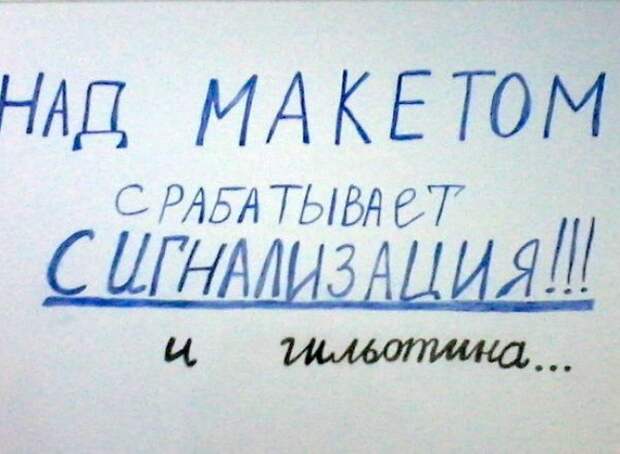 НАД МАКЕТОМ
СРАБАТЫВАЕТ
СИГНАЛИЗАЦИЯ!!!
и гильотина...